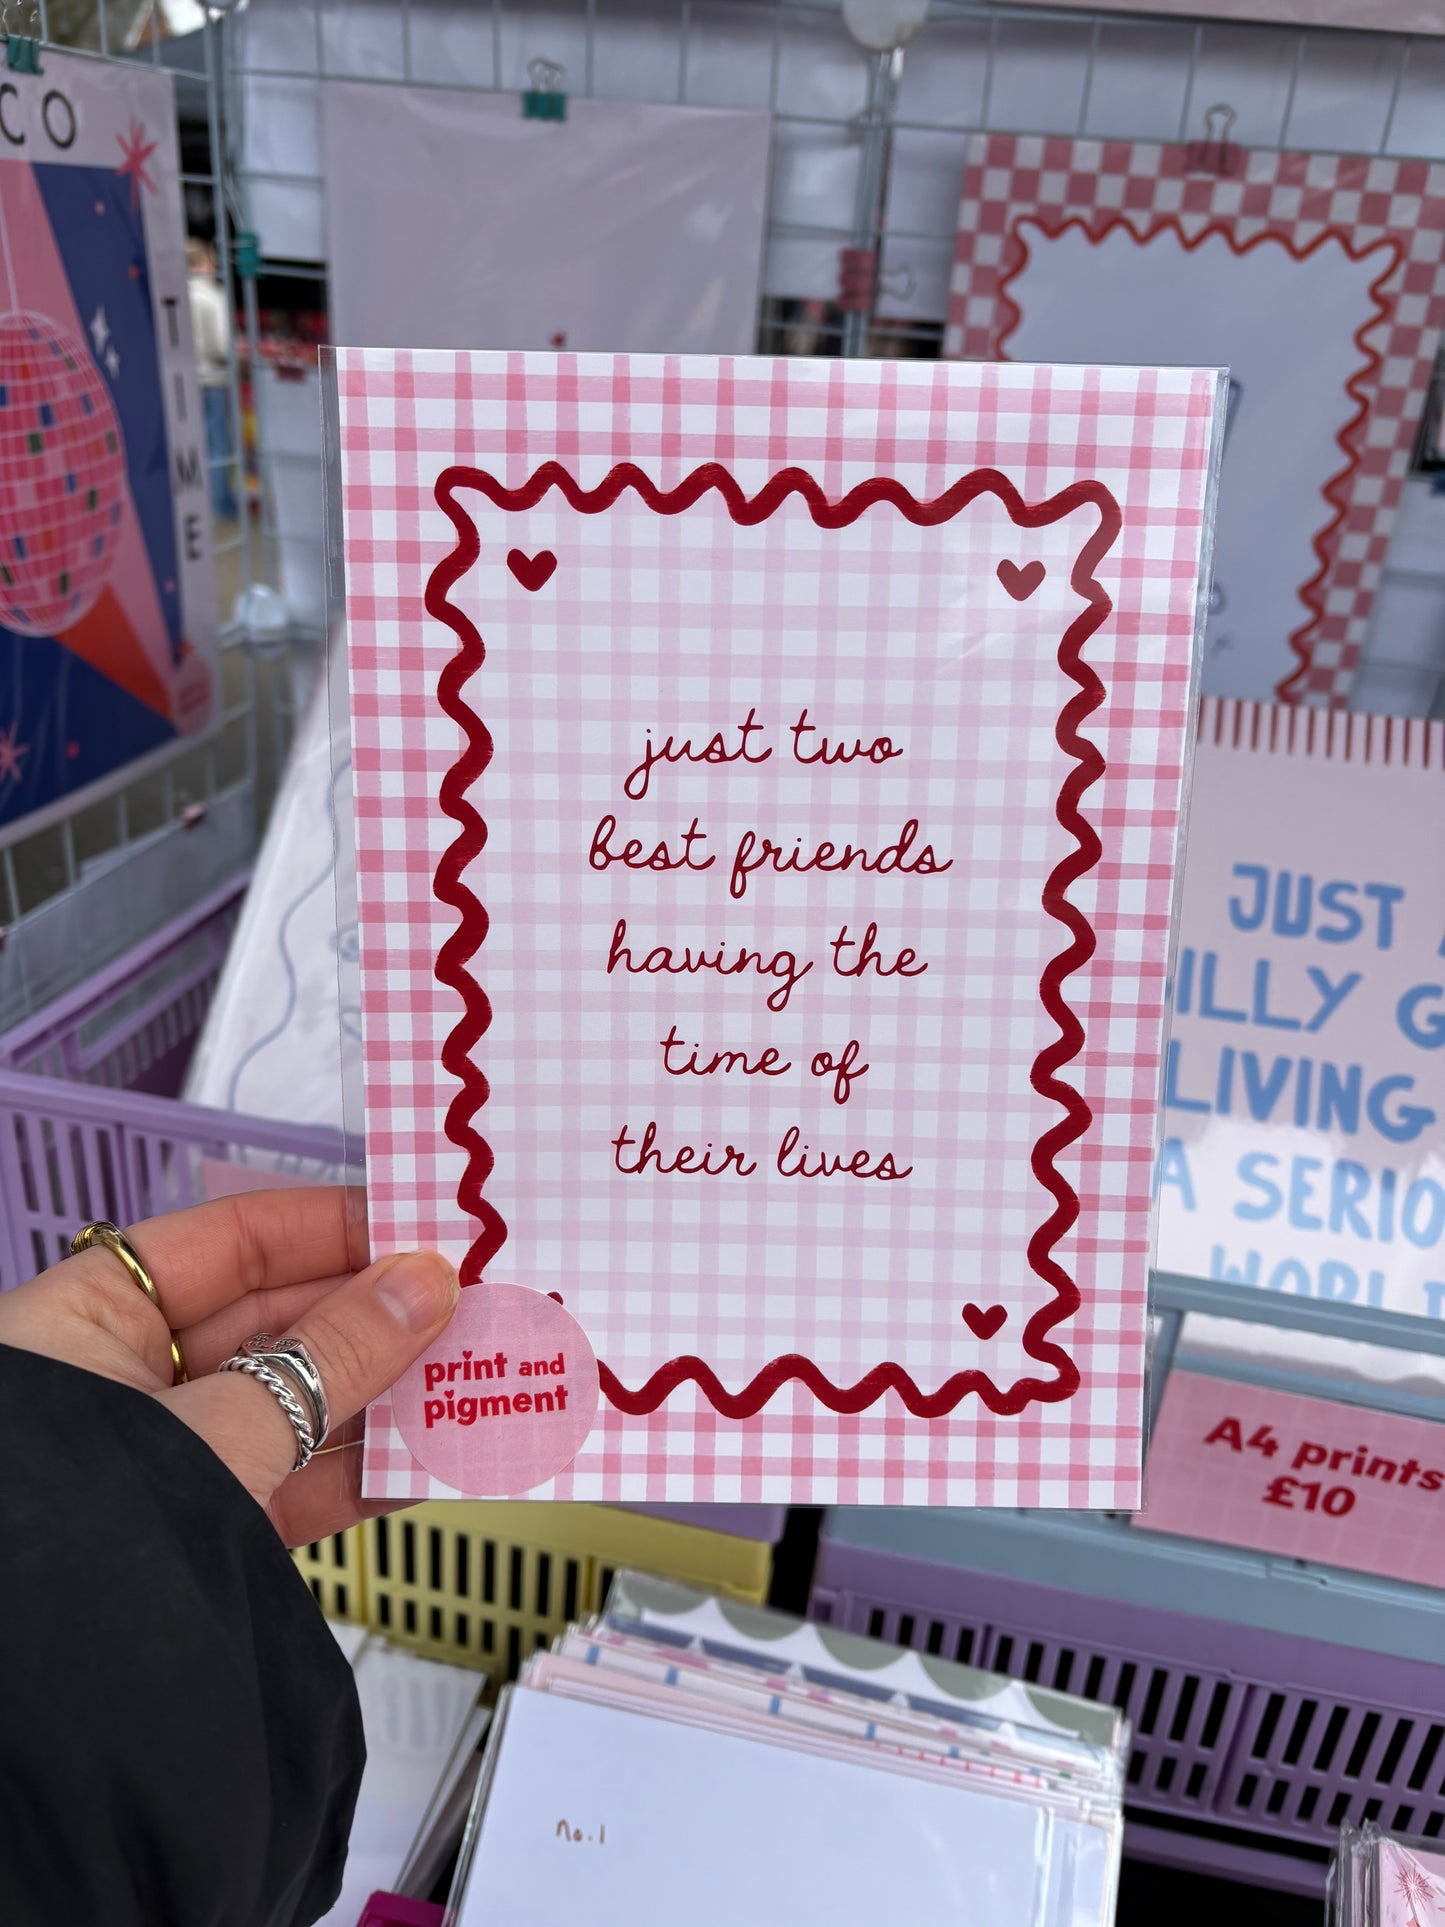 CO
TIME
just two
best friends
having the
time of
their lives
print and
pigment
JUST
LIVING
A SERIO
WORL
A4 prints
£10
no.1